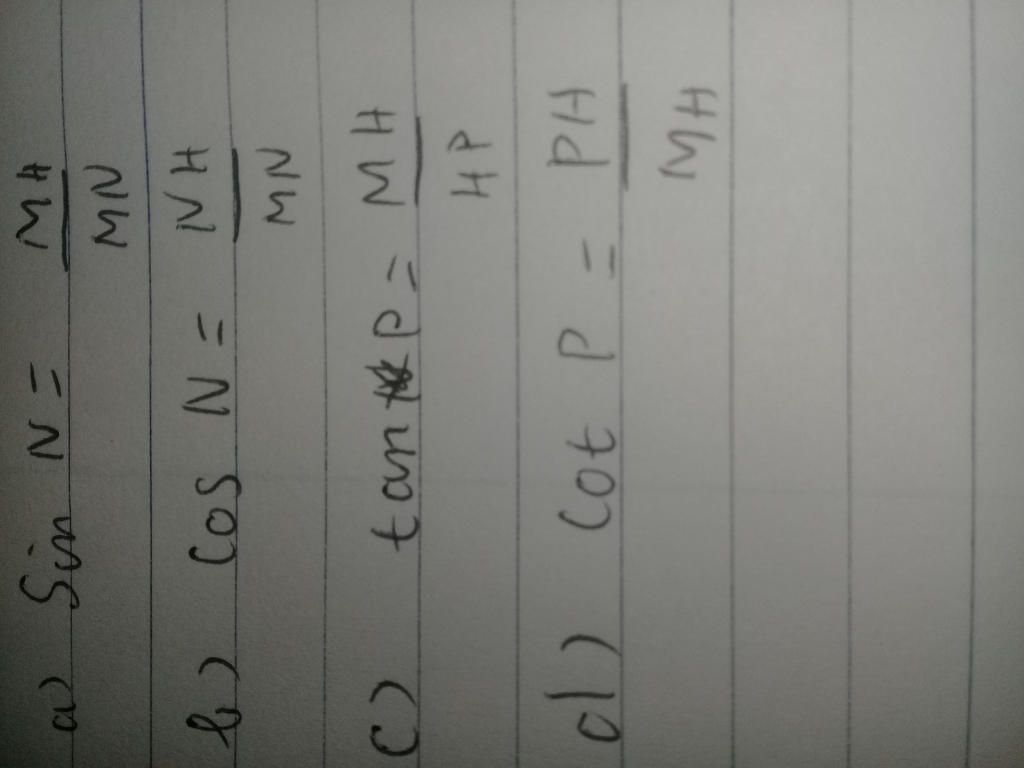 a) Sin N = MH/MN
b) Cos N = NH/MN
c) tan P = MH/HP
d) Cot P = PH/MH